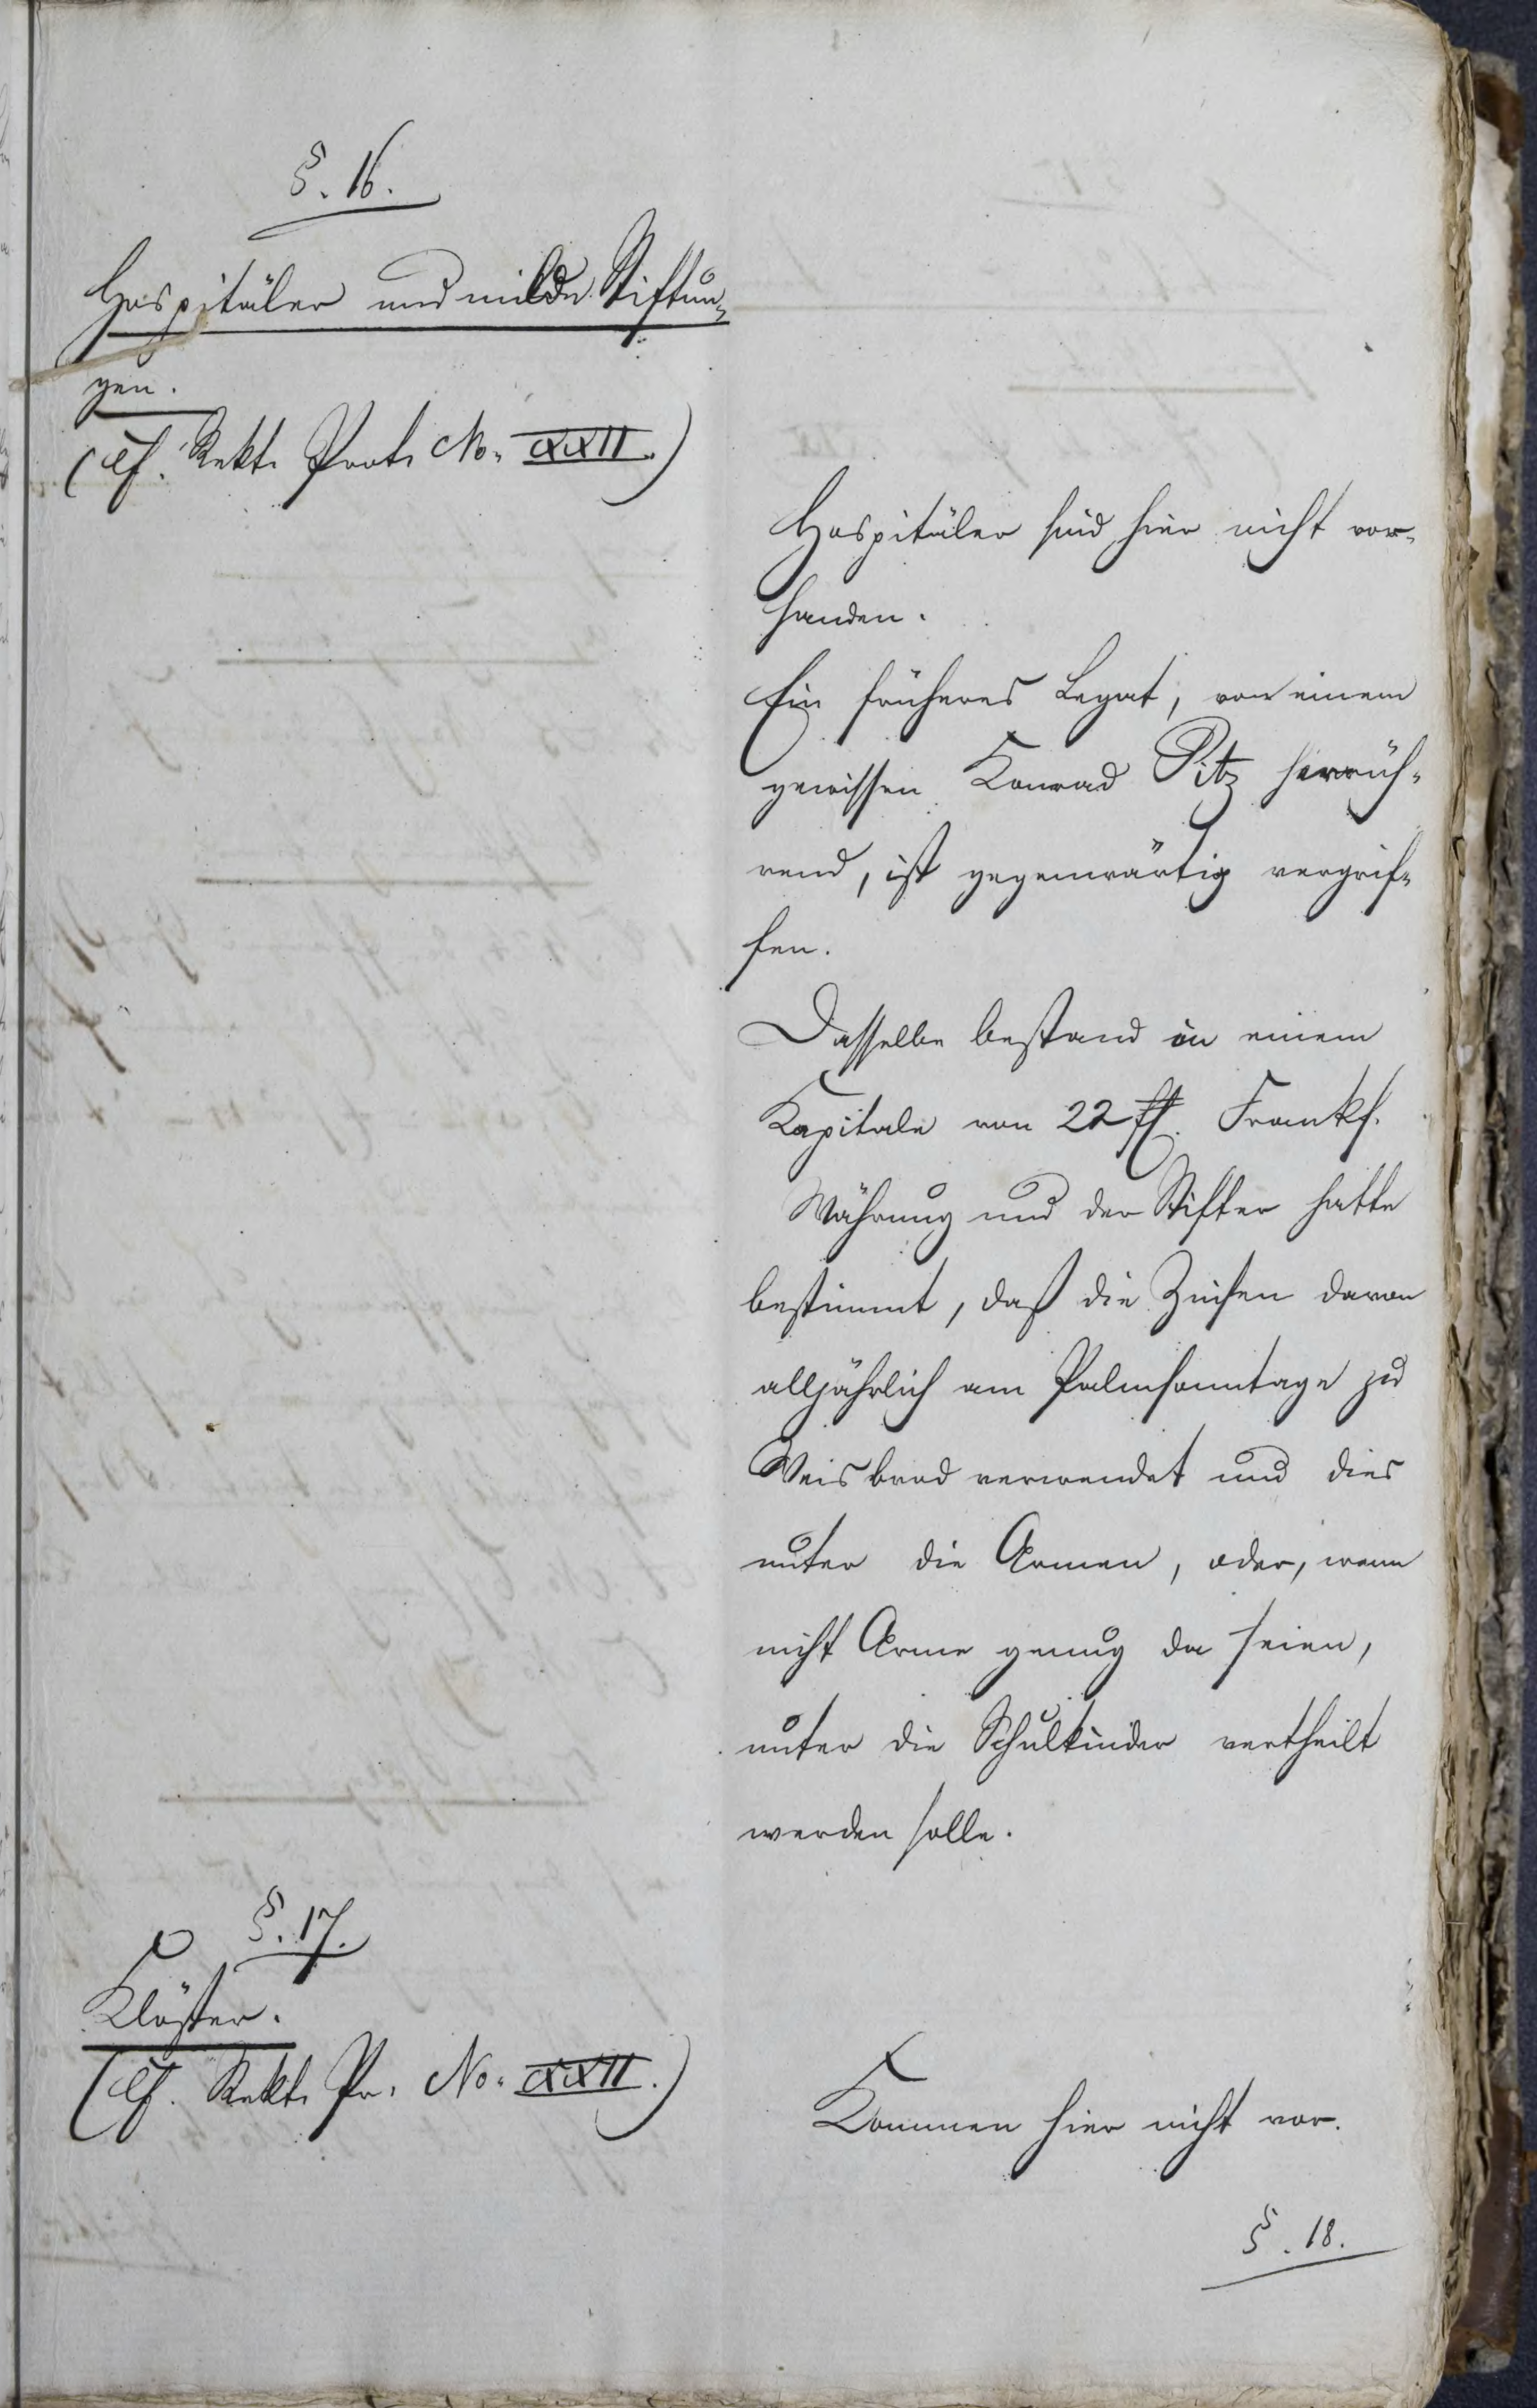 §. 16.
Hospitäler und milde Stiftun-
gen.
(cf. Rekt. Prot. No. XXII.)
Hospitäler sind hier nicht vor-
handen.
Ein früheres Legat, von einem
gewissen Konrad Pitz herrüh-
rend, ist gegenwärtig vergrif-
fen.
Dasselbe bestand in einem
Kapitale von 22 fl. Frankf.
Währung und der Stifter hatte
bestimmt, daß die Zinsen davon
alljährlich am Palmsonntage zu
Weisbrod verwendet und dies
unter die Armen, oder, wenn
nicht Arme genug da seien,
unter die Schulkinder vertheilt
werden solle.
§. 17.
Klöster.
(cf. Rekt. Pr. No. XXII.)
Kommen hier nicht vor.
§. 18.